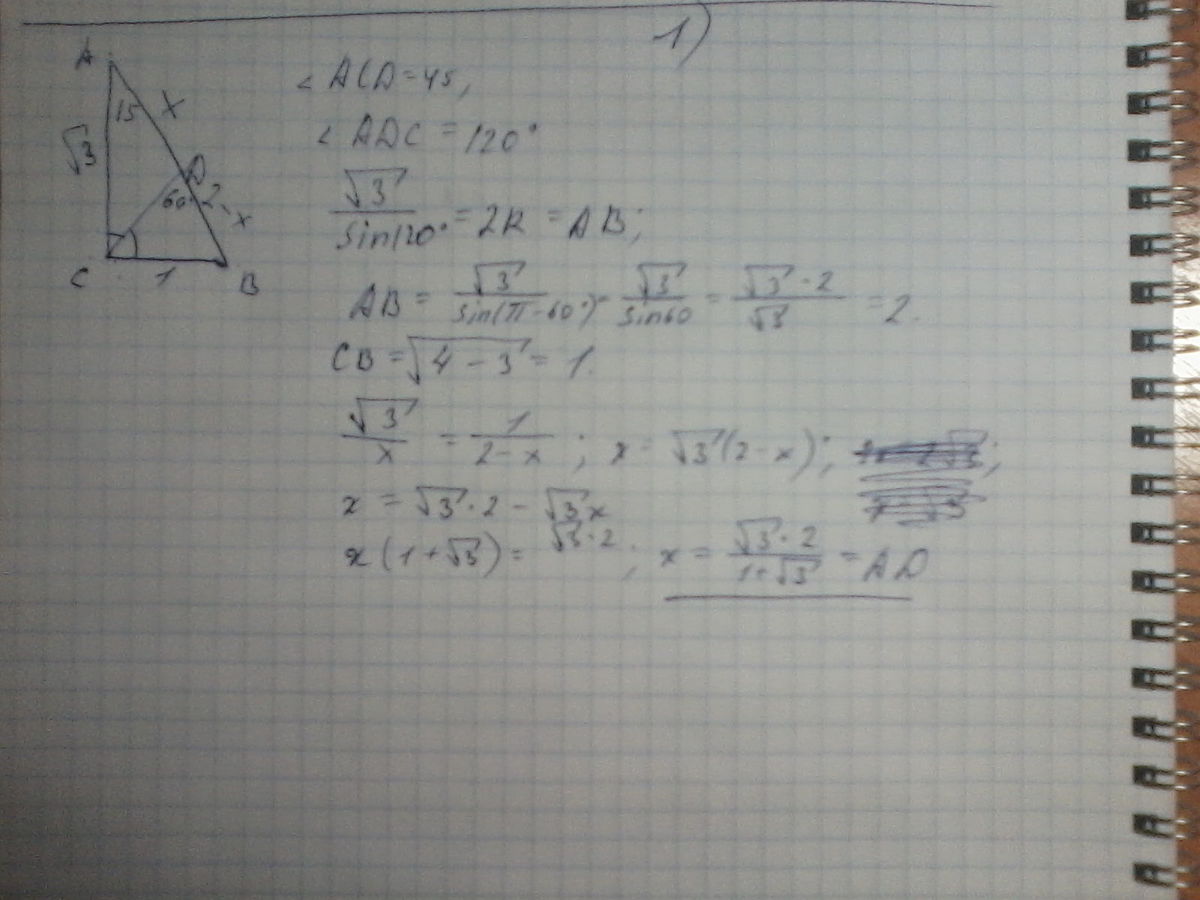 1)
A
15
x
√3
D
60° 2-x
C
1
B
∠ ACD = 45,
∠ ADC = 120°
√3 / sin120° = 2R = AB;
AB = √3 / sin(π - 60°) = √3 / sin60 = √3 · 2 / √3 = 2.
CB = √4 - 3 = 1.
√3 / x = 1 / 2-x ; x = √3(2-x);
x = √3 · 2 - √3x
x(1+√3) = √3 · 2 ; x = √3 · 2 / 1+√3 = AD